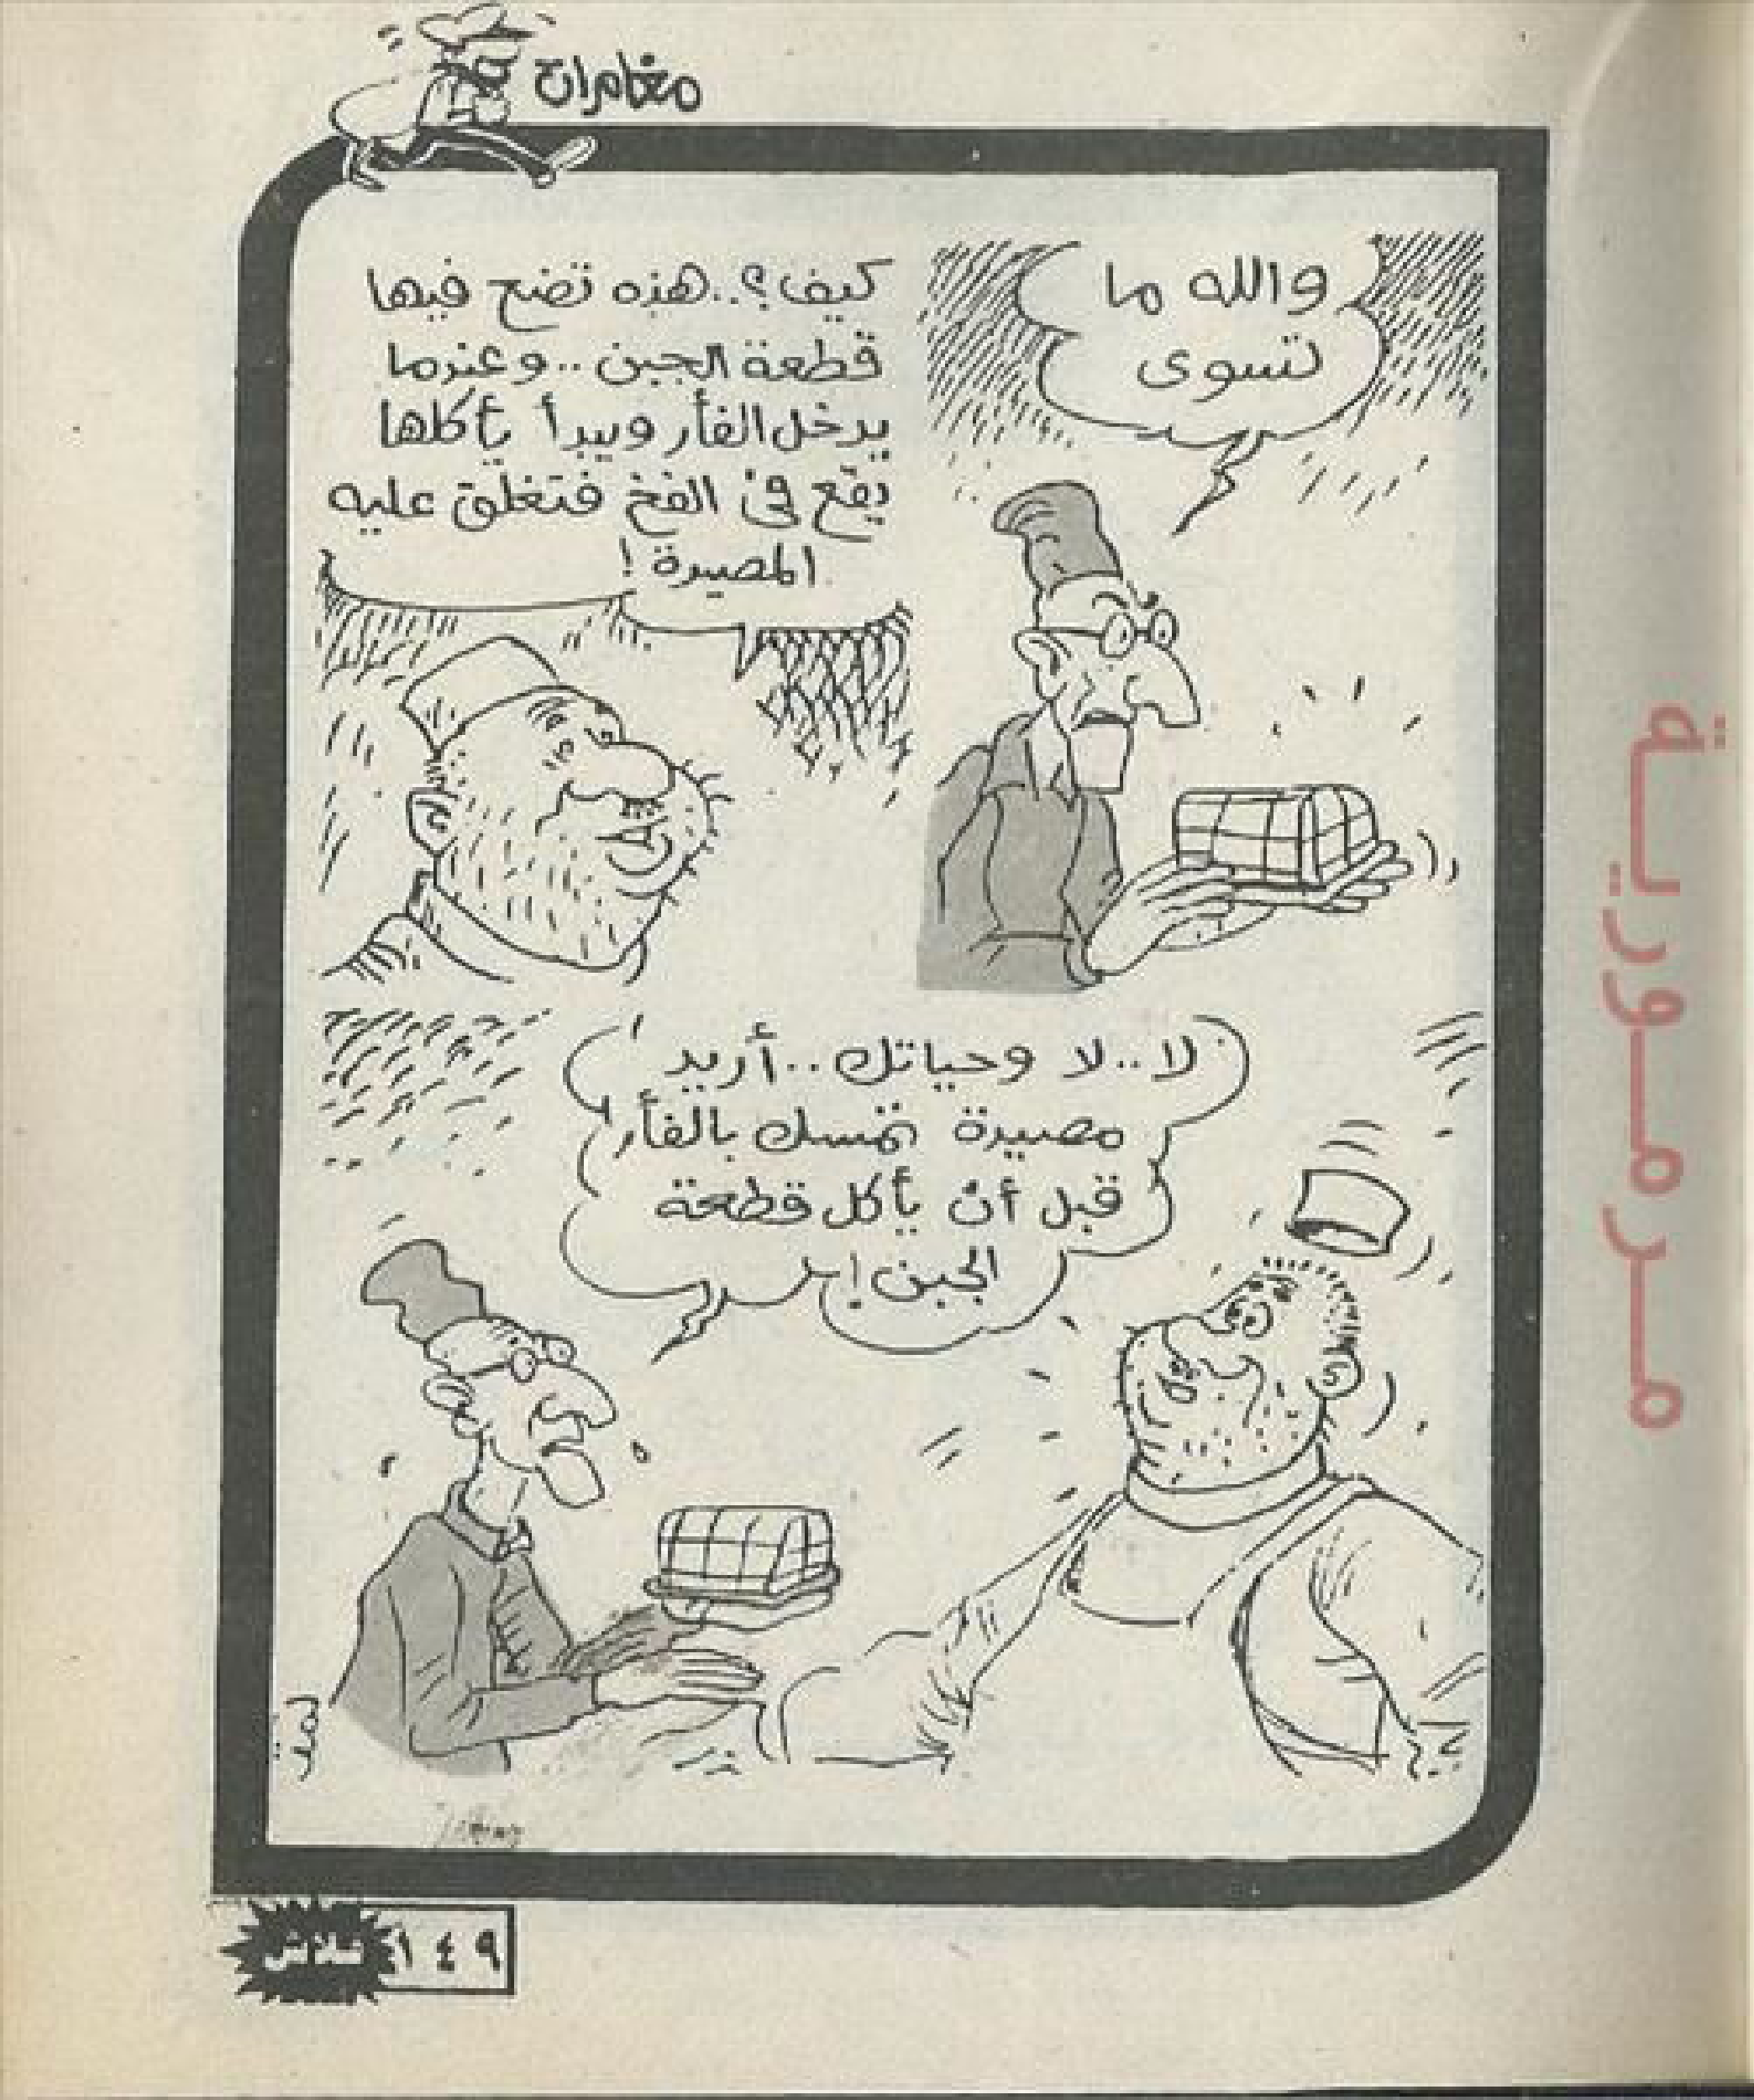 مغامرات
والله ما
تسوى
كيف؟..هذه تضع فيها
قطعة الجبن ..وعندما
يدخل الفأر ويبدأ يأكلها
يقع فى الفخ فتغلق عليه
المصيدة !
لا..لا وحياتك..أريد
مصيدة تمسك بالفأر
قبل أن يأكل قطعة
الجبن!
فلاش
١٤٩
مرمورية